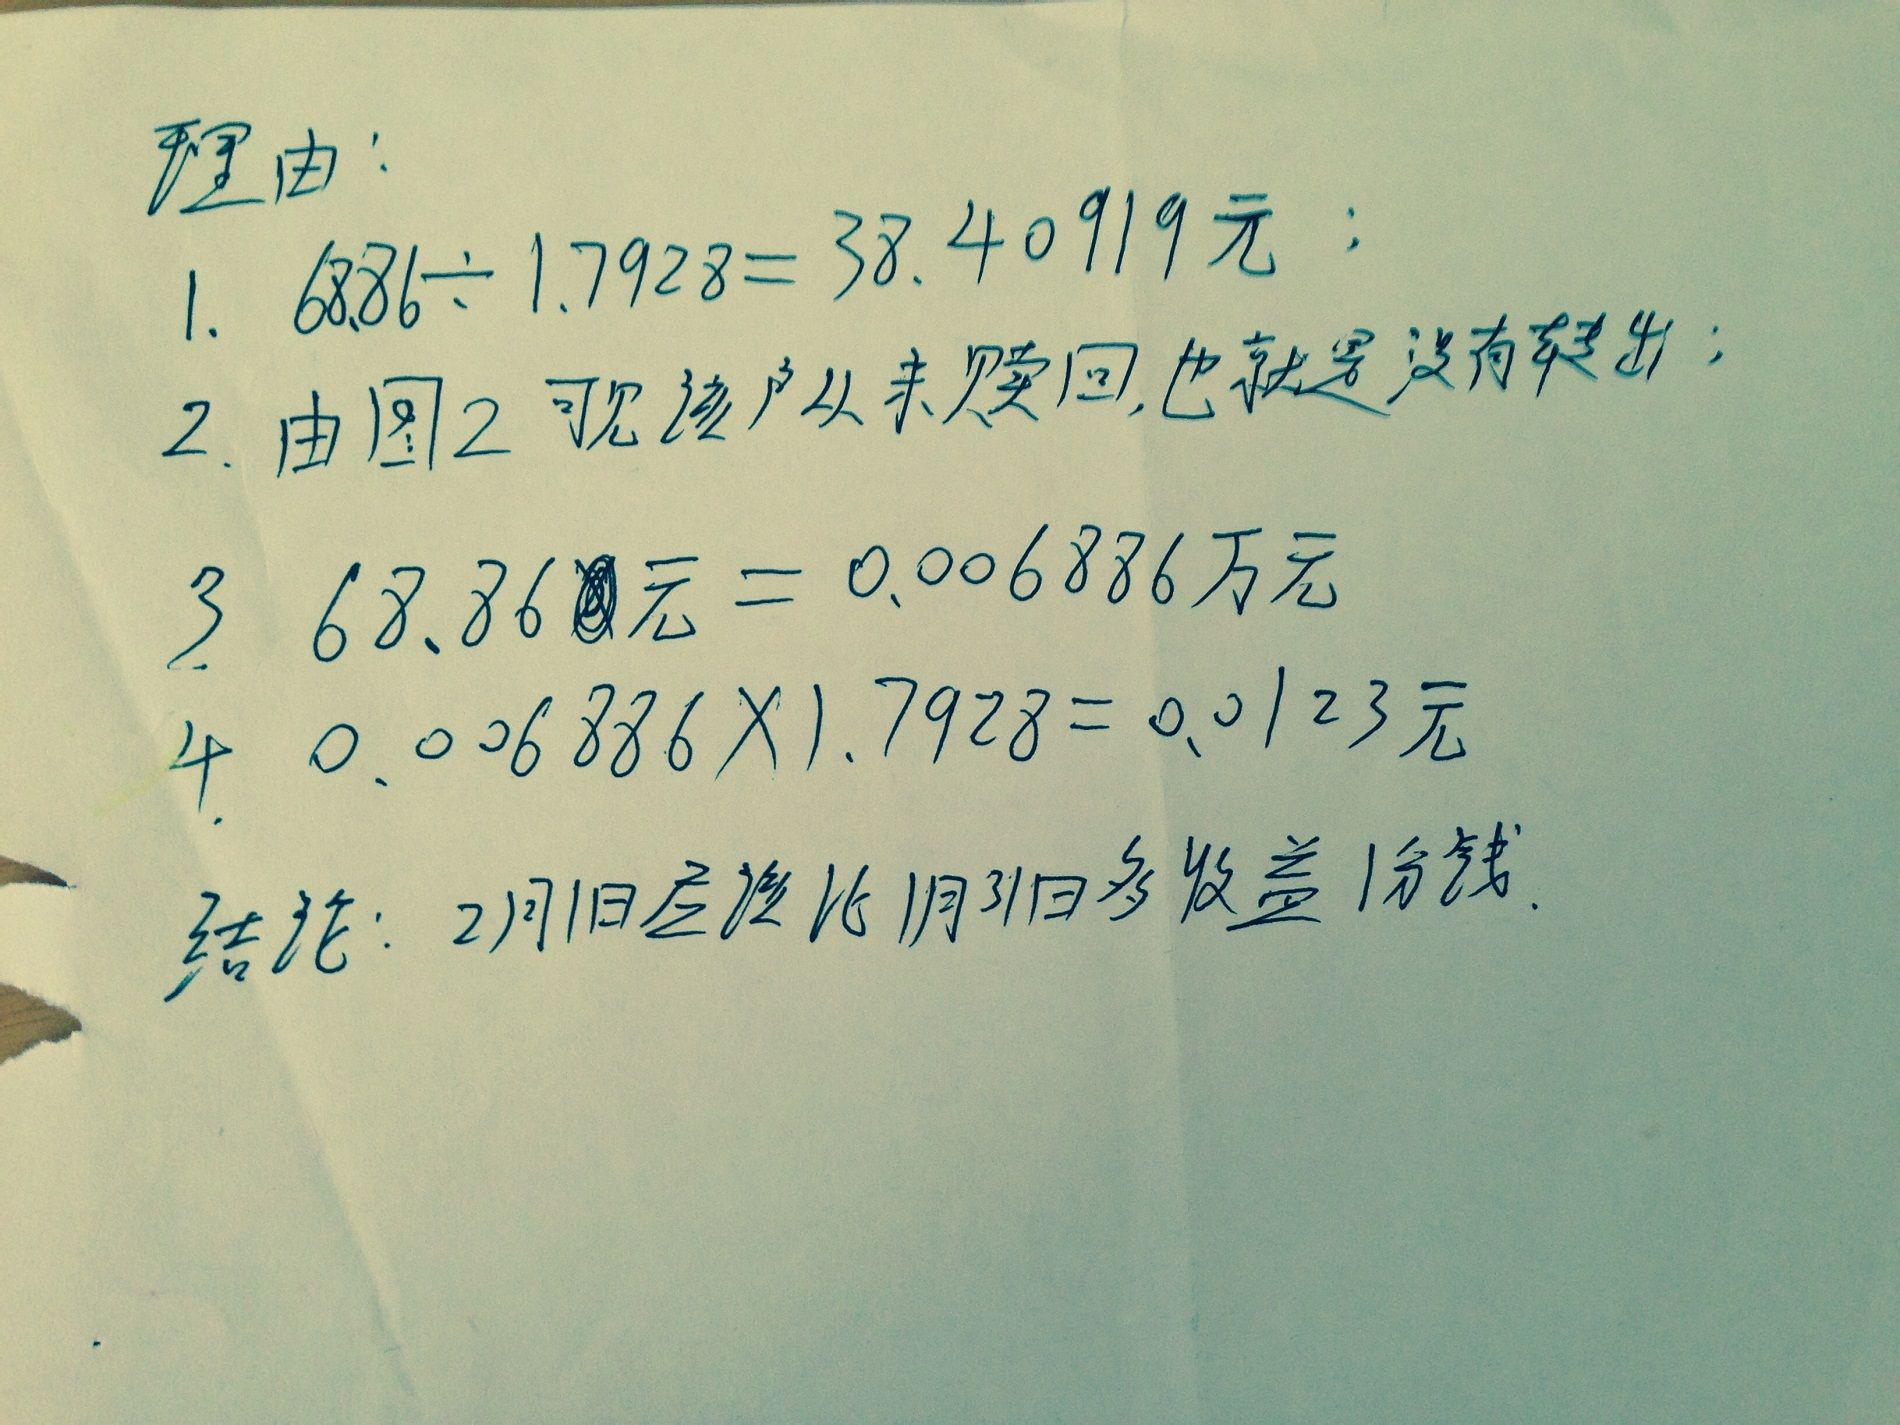 理由:
1. 68.86÷1.7928=38.40919元;
2. 由图2可见该户从未赎回,也就是没有转出;
3. 68.86元=0.006886万元
4. 0.006886×1.7928=0.0123元
结论:2月1日应该比1月31日多收益1分钱.